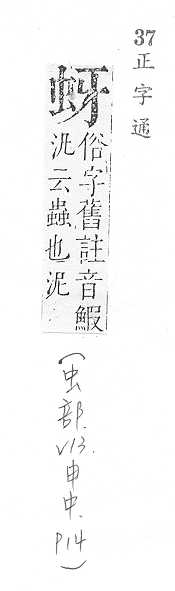 37
正字通
蚜
俗字舊註音鰕
汎云蟲也泥
(虫部. V13. 申中. P14)